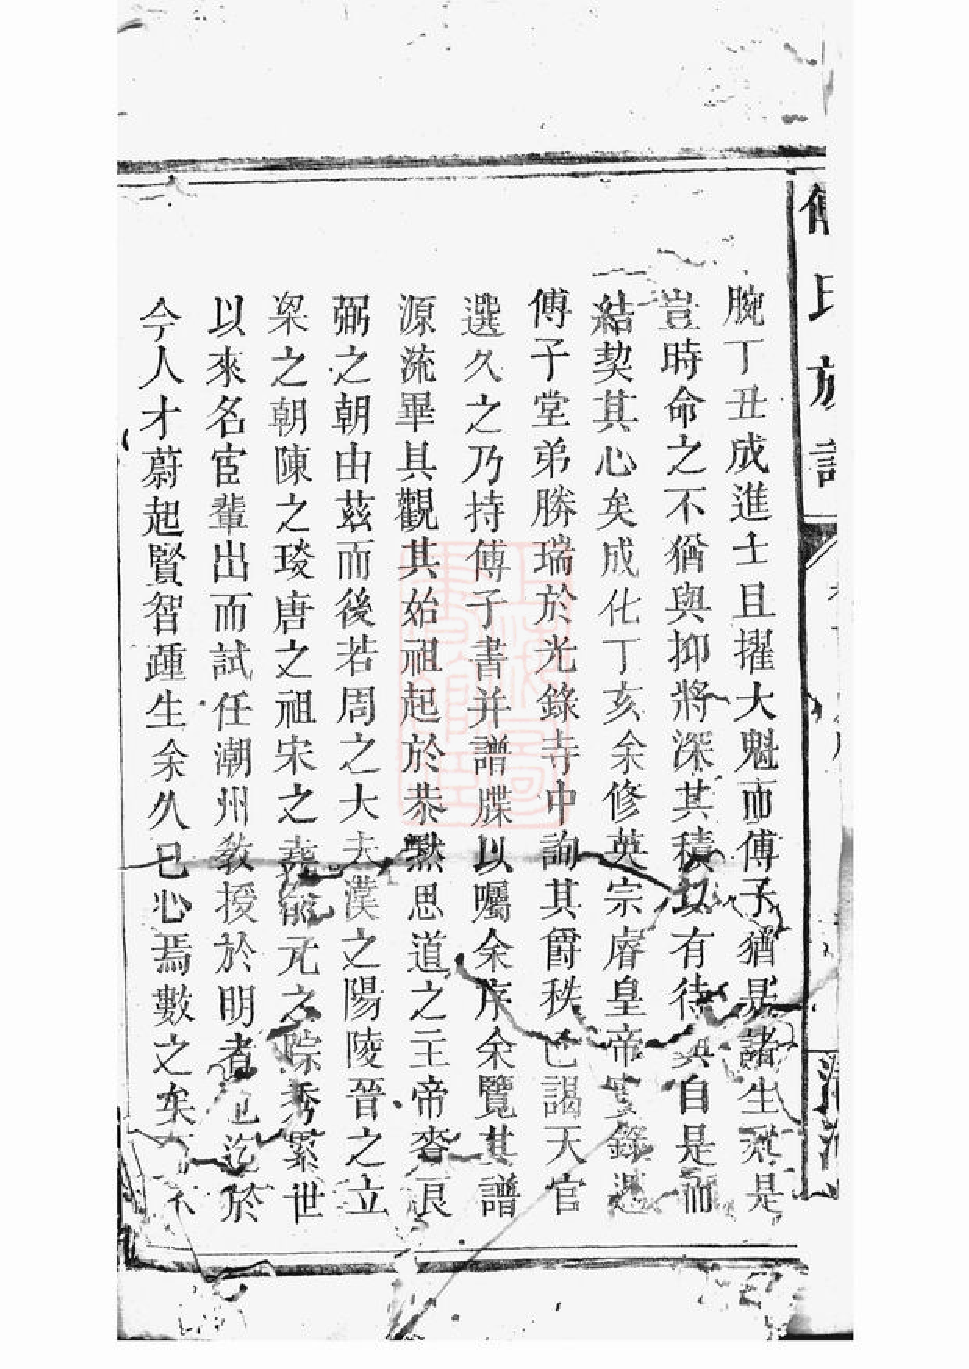 傅氏族譜
腕丁丑成進士且擢大魁而傅子猶是諸生於是
豈時命之不猶與抑將深其積以有待與自是而
結契其心矣成化丁亥余修英宗睿皇帝實錄遇
傅子堂弟勝瑞於光錄寺中詢其爵秩已謁天官
選久之乃持傅子書并譜牒以囑余序余覽其譜
源流畢具觀其始祖起於恭默思道之王帝賚良
弼之朝由茲而後若周之大夫漢之陽陵晉之立
梁之朝陳之琰唐之祖宋之堯俞元之琮秀累世
以來名宦輩出而試任潮州教授於明者也迄於
今人才蔚起賢智踵生余久已心焉數之矣不